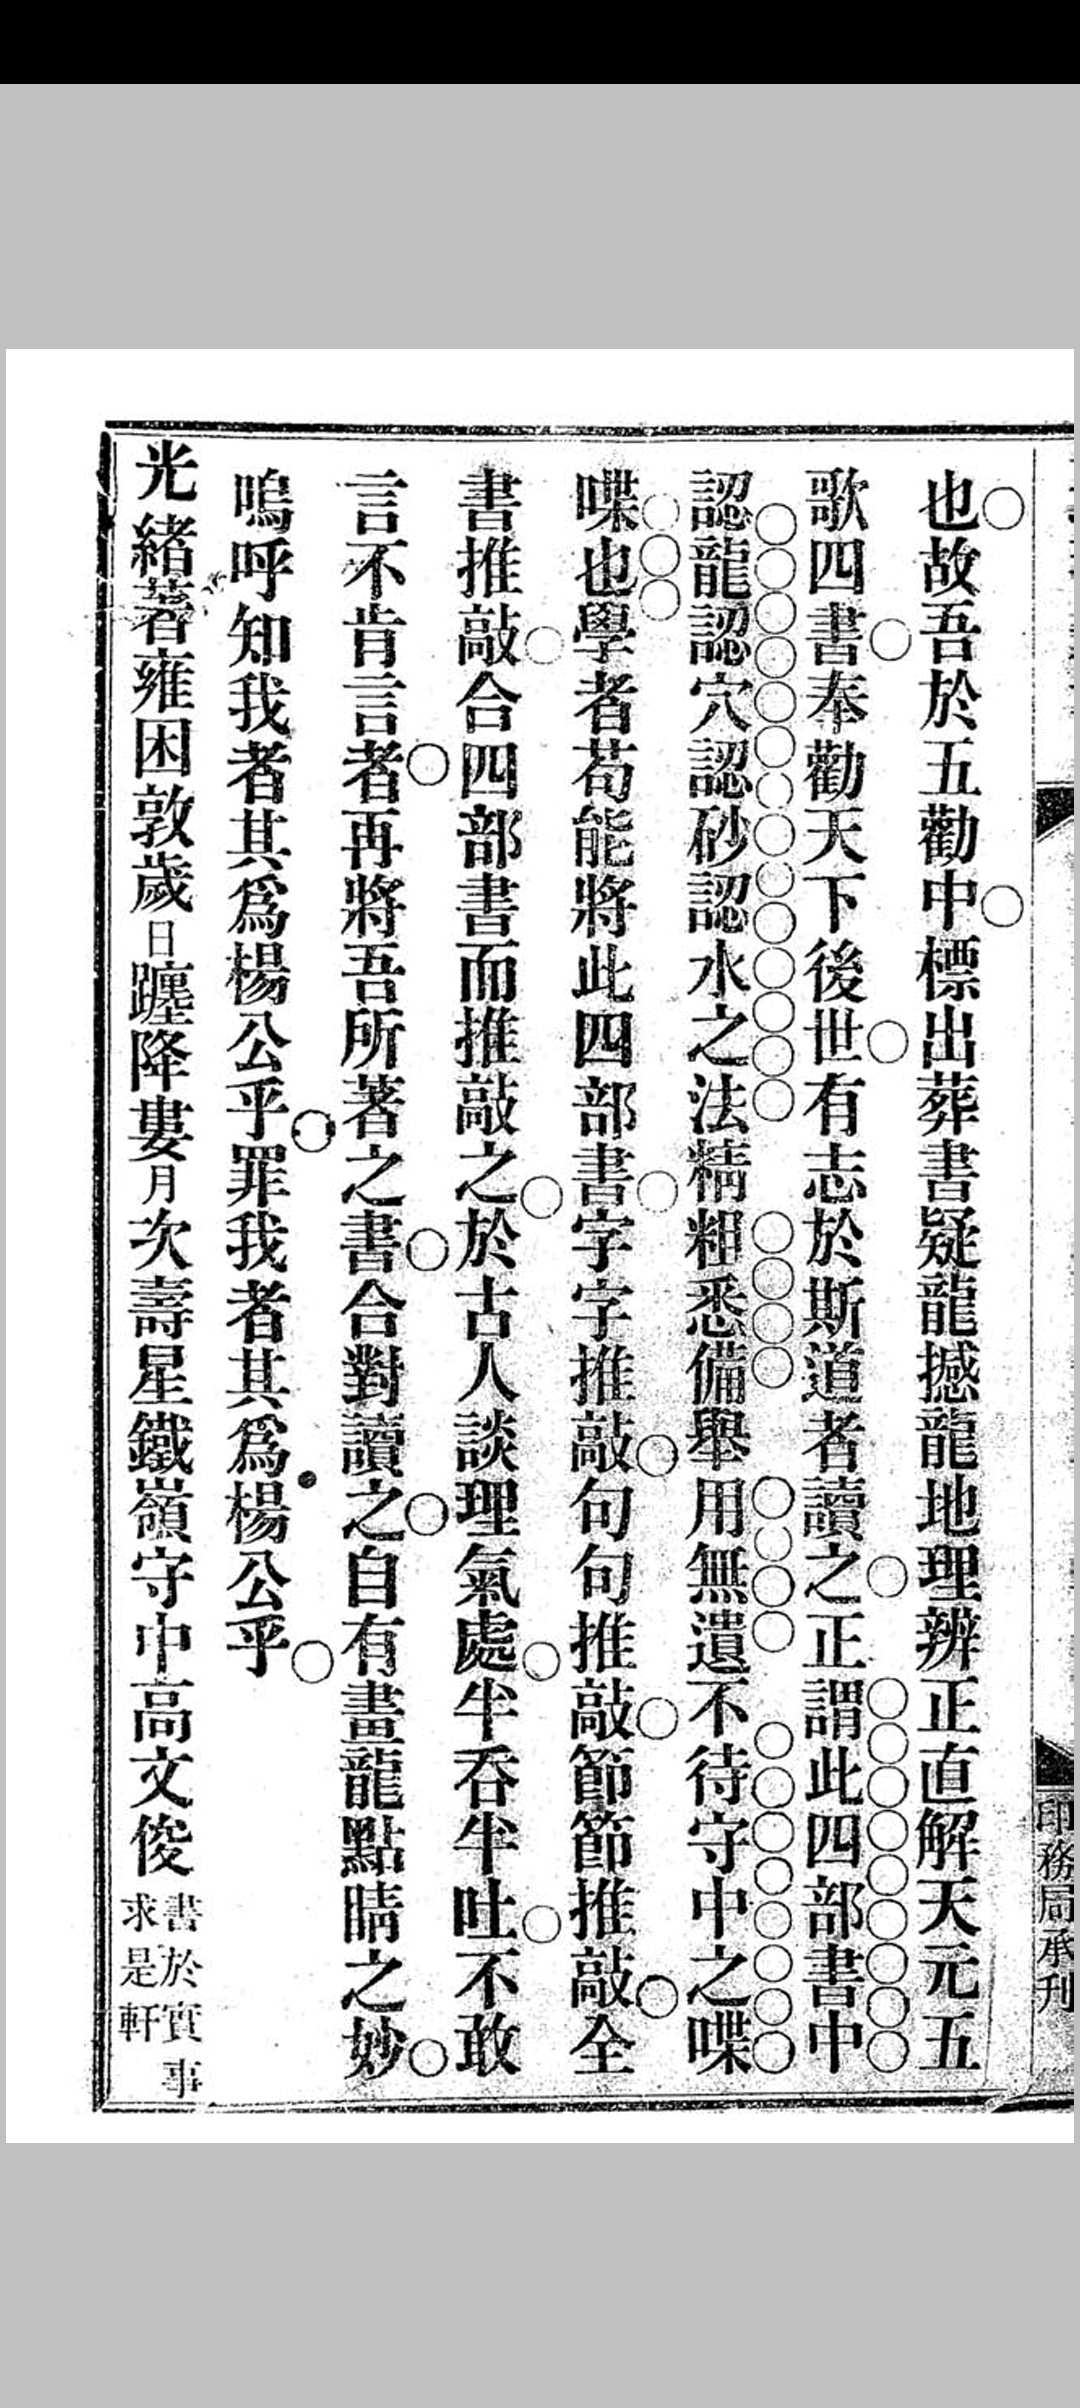 也故吾於五勸中標出葬書疑龍撼龍地理辨正直解天元五
歌四書奉勸天下後世有志於斯道者讀之正謂此四部書中
認龍認穴認砂認水之法精粗悉備舉用無遺不待守中之喋
喋也學者苟能將此四部書字字推敲句句推敲節節推敲全
書推敲合四部書而推敲之於古人談理氣處半吞半吐不敢
言不肯言者再將吾所著之書合對讀之自有畫龍點睛之妙
嗚呼知我者其爲楊公乎罪我者其爲楊公乎
光緒著雍困敦歲日躔降婁月次壽星鐵嶺守中高文俊
書於實事
求是軒
印務局承刊